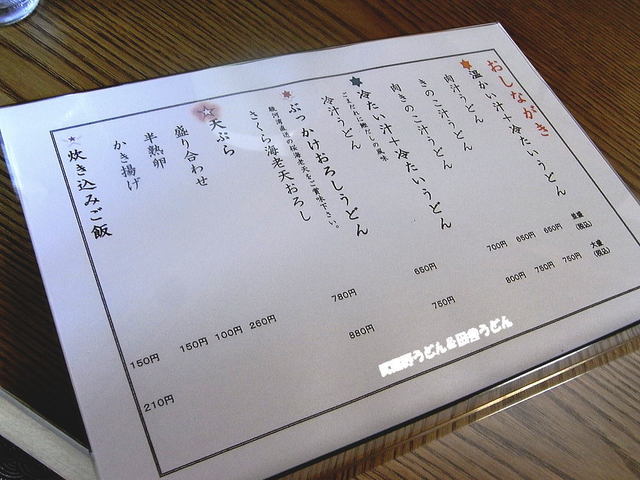 おしながき
温かい汁+冷たいうどん
並盛(税込)
大盛(税込)
肉汁うどん 650円 750円
きのこ汁うどん 650円 750円
肉きのこ汁うどん 700円 800円
冷たい汁+冷たいうどん
ごまだれに鰹だしの風味
冷汁うどん 650円 750円
ぶっかけおろしうどん
駿河湾直送の桜海老天をご賞味下さい。
さくら海老天おろし 780円 880円
天ぷら
盛り合わせ 260円
半熟卵 100円
かき揚げ 150円
炊き込みご飯 150円 210円
うどん&田舎うどん